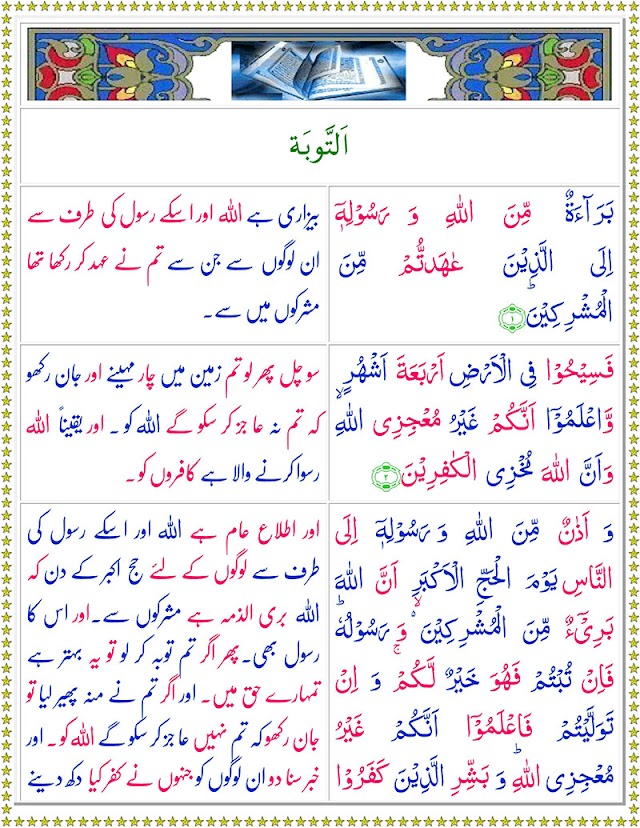 اَلتَّوبَة
بَرَآءَةٌ مِّنَ اللّٰهِ وَ رَسُوْلِهٖۤ
اِلَى الَّذِيْنَ عٰهَدتُّمْ مِّنَ
الْمُشْرِكِيْنَؕ ۱
بیزاری ہے اللہ اور اسکے رسول کی طرف سے
ان لوگوں سے جن سے تم نے عہد کر رکھا تھا
مشرکوں میں سے۔
فَسِيْحُوْا فِى الْاَرْضِ اَرْبَعَةَ اَشْهُرٍ
وَّاعْلَمُوْۤا اَنَّكُمْ غَيْرُ مُعْجِزِى اللّٰهِۙ
وَاَنَّ اللّٰهَ مُخْزِى الْكٰفِرِيْنَ ۲
سو چل پھر لو تم زمین میں چار مہینے اور جان رکھو
کہ تم نہ عاجز کر سکو گے اللہ کو۔ اور یقیناً اللہ
رسوا کرنے والا ہے کافروں کو۔
وَ اَذٰنٌ مِّنَ اللّٰهِ وَ رَسُوْلِهٖۤ اِلَى
النَّاسِ يَوْمَ الْحَجِّ الْاَكْبَرِ اَنَّ اللّٰهَ
بَرِىْۤءٌ مِّنَ الْمُشْرِكِيْنَ ۙ وَ رَسُوْلُهٗؕ
فَاِنْ تُبْتُمْ فَهُوَ خَيْرٌ لَّكُمْۚ وَ اِنْ
تَوَلَّيْتُمْ فَاعْلَمُوْۤا اَنَّكُمْ غَيْرُ
مُعْجِزِى اللّٰهِؕ وَ بَشِّرِ الَّذِيْنَ كَفَرُوْا
اور اطلاع عام ہے اللہ اور اسکے رسول کی
طرف سے لوگوں کے لئے حج اکبر کے دن کہ
اللہ بری الذمہ ہے مشرکوں سے۔ اور اس کا
رسول بھی۔ پھر اگر تم توبہ کر لو تو یہ بہتر ہے
تمہارے حق میں۔ اور اگر تم نے منہ پھیر لیا تو
جان رکھو کہ تم نہیں عاجز کر سکو گے اللہ کو۔ اور
خبر سنا دو ان لوگوں کو جنہوں نے کفر کیا دکھ دینے